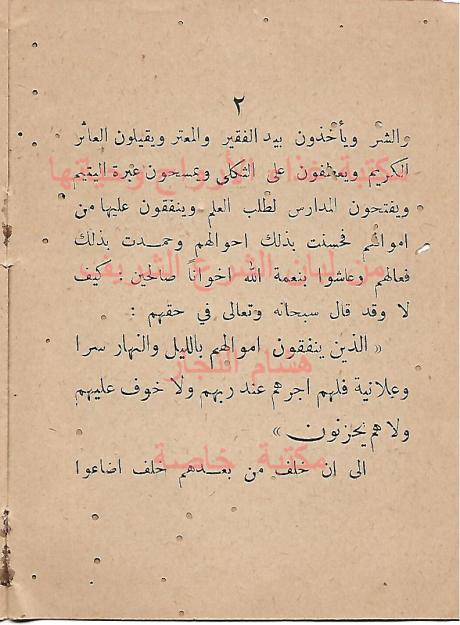 ٢
والشر ويأخذون بيد الفقير والمعتر ويقيلون العاثر
الكريم ويعطفون على الثكلى ويمسحون عبرة اليتيم
ويفتحون المدارس لطلب العلم وينفقون عليها من
اموالهم فحسنت بذلك احوالهم وحمدت بذلك
فعالهم وعاشوا بنعمة الله اخواناً صالحين : كيف
لا وقد قال سبحانه وتعالى في حقهم :
« الذين ينفقون اموالهم بالليل والنهار سرا
وعلانية فلهم اجرهم عند ربهم ولا خوف عليهم
ولا هم يحزنون »
الى ان خلف من بعدهم خلف اضاعوا
مكتبة غذاء الأرواح وحياتها
من لسان الشرع الشريف
هشام النجار
مكتبة خاصة